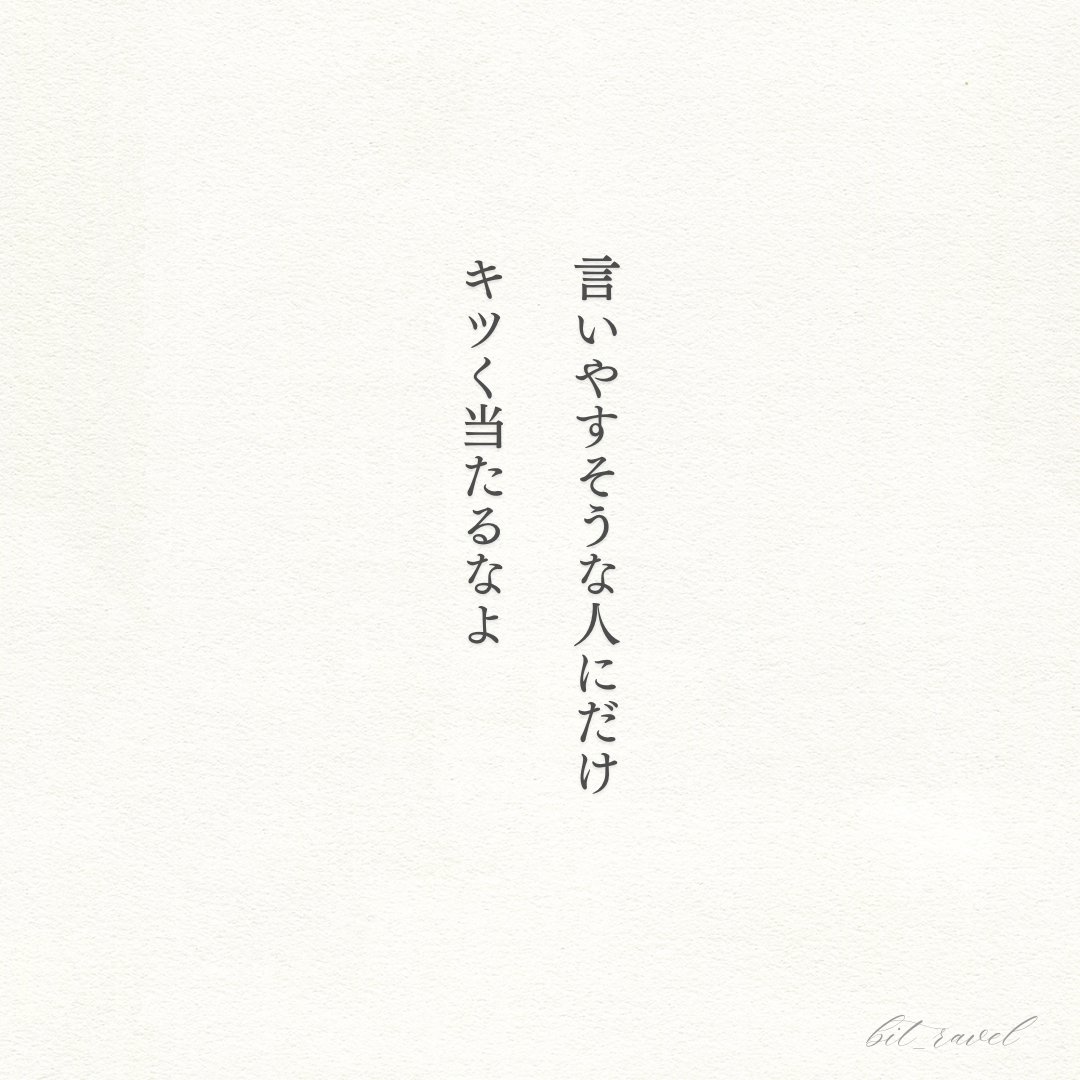 言いやすそうな人にだけ
キツく当たるなよ
bit_ravel